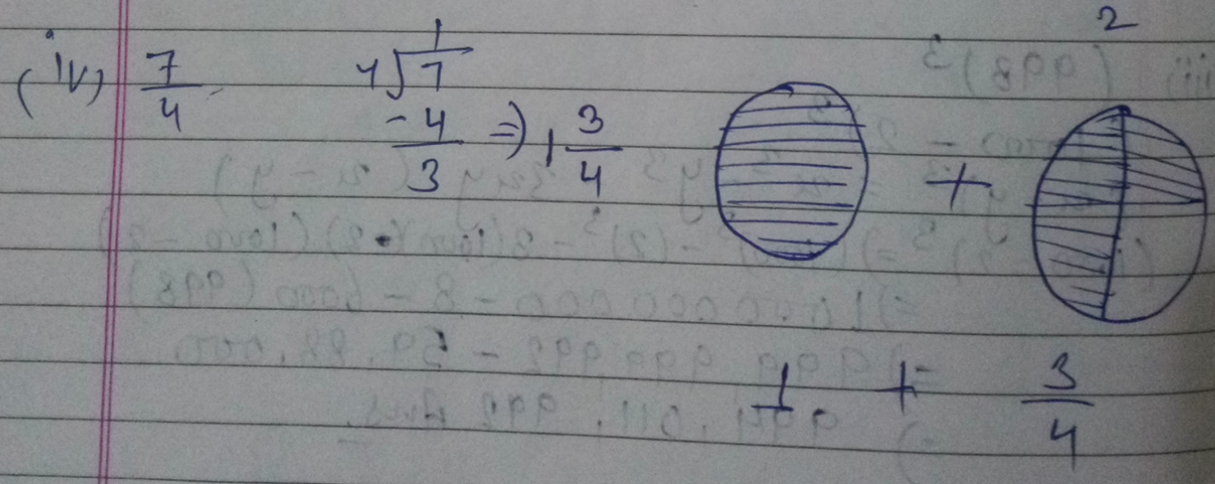 2
(iv) 7/4 4√7 1
-4 => 1 3/4
3
+
1 + 3/4